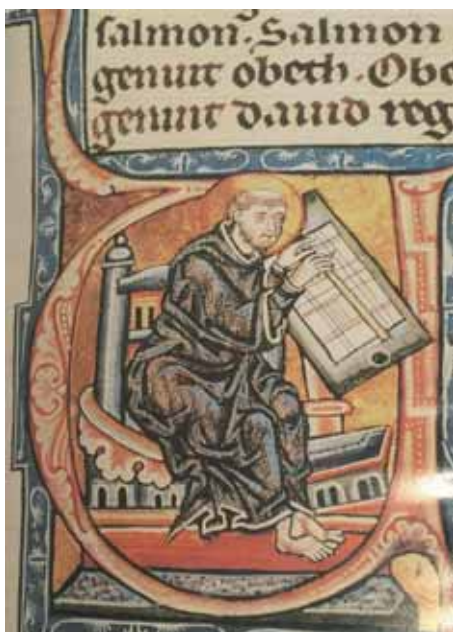 salmon. Salmon
genuit obeth. Obe
genuit dauid reg